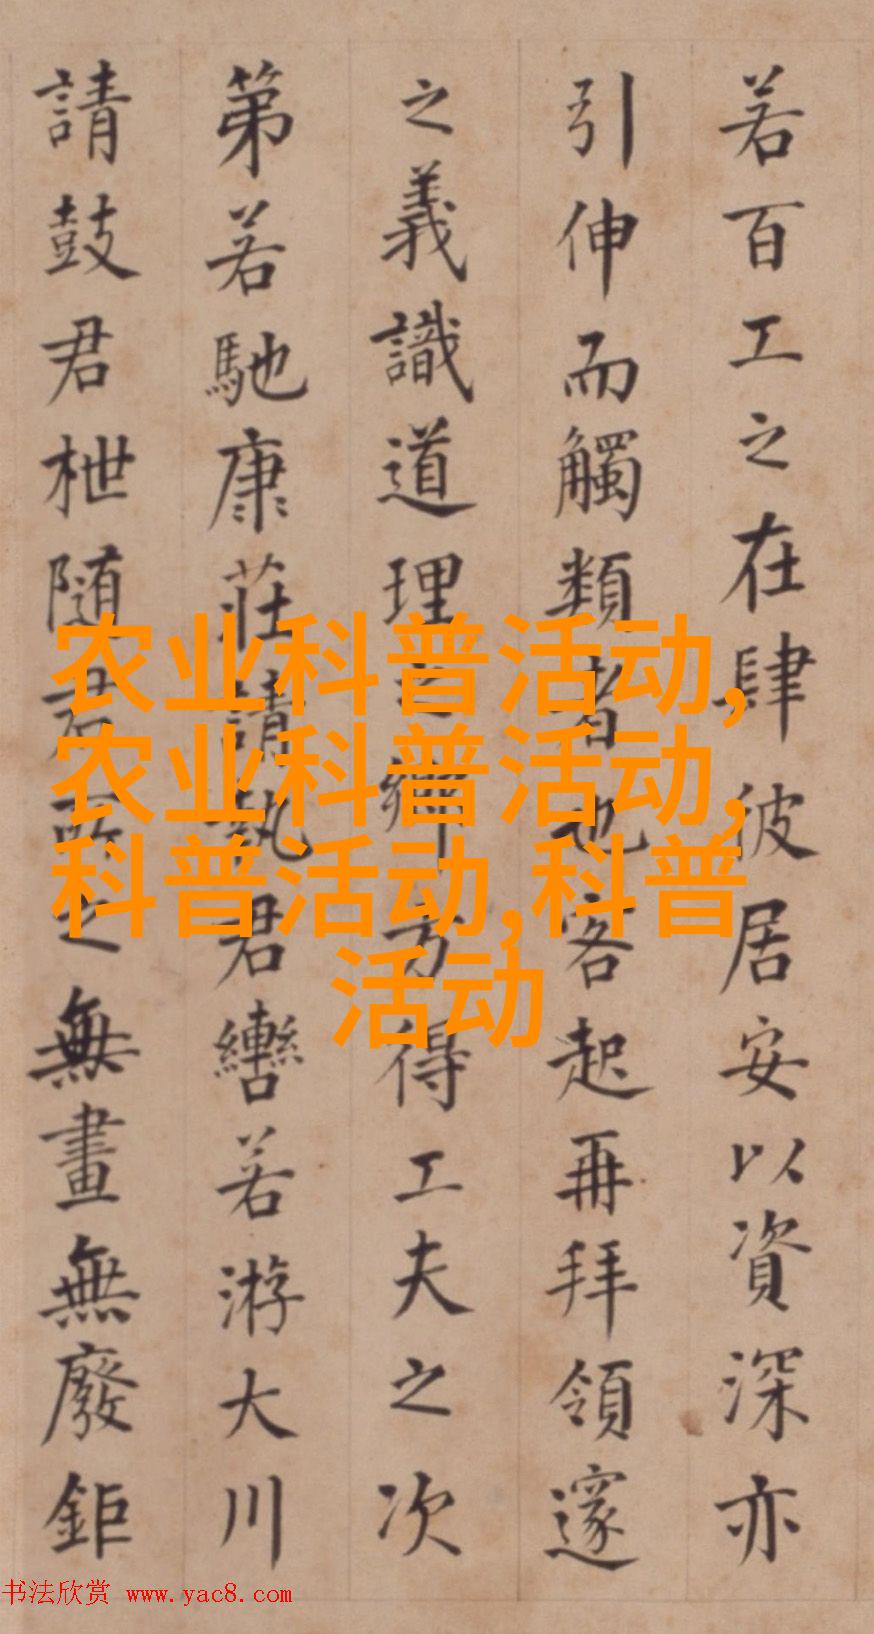 若百工之在肆彼居安以資深亦
引伸而觸類者也客起再拜領邃
之義識道理之鄉方得工夫之次
第若馳康莊請執君轡若游大川
請鼓君枻隨君所之無畫無廢鉅
农业科普活动,
农业科普活动,
科普活动,科普
活动
书法欣赏 www.yac8.com